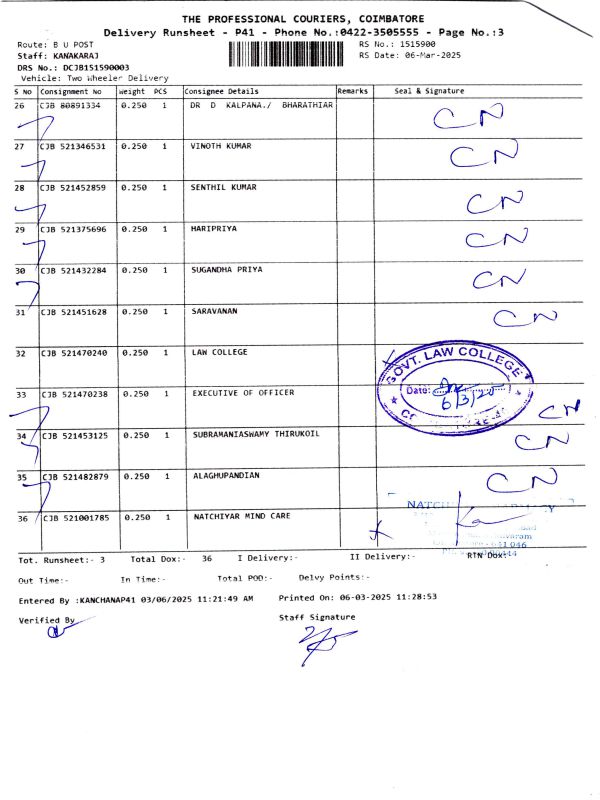 THE PROFESSIONAL COURIERS, COIMBATORE
Delivery Runsheet - P41 - Phone No.:0422-3505555 - Page No.:3
Route: B U POST RS No.: 1515900
Staff: KANAKARAJ RS Date: 06-Mar-2025
DRS No.: DCJB151590003
Vehicle: Two Wheeler Delivery
S No Consignment No Weight PCS Consignee Details Remarks Seal & Signature
26 CJB 80891334 0.250 1 DR D KALPANA./ BHARATHIAR CN
27 CJB 521346531 0.250 1 VINOTH KUMAR CN
28 CJB 521452859 0.250 1 SENTHIL KUMAR CN
29 CJB 521375696 0.250 1 HARIPRIYA CN
30 CJB 521432284 0.250 1 SUGANDHA PRIYA CN
31 CJB 521451628 0.250 1 SARAVANAN CN
32 CJB 521470240 0.250 1 LAW COLLEGE
GOVT. LAW COLLEGE
Date:
6/3/25
33 CJB 521470238 0.250 1 EXECUTIVE OF OFFICER CN
34 CJB 521453125 0.250 1 SUBRAMANIASWAMY THIRUKOIL CN
35 CJB 521482879 0.250 1 ALAGHUPANDIAN CN
36 CJB 521001785 0.250 1 NATCHIYAR MIND CARE
641 046
Tot. Runsheet:- 3 Total Dox:- 36 I Delivery:- II Delivery:- RTN Dox:-
Out Time:- In Time:- Total POD:- Delvy Points:-
Entered By :KANCHANAP41 03/06/2025 11:21:49 AM Printed On: 06-03-2025 11:28:53
Verified By Staff Signature